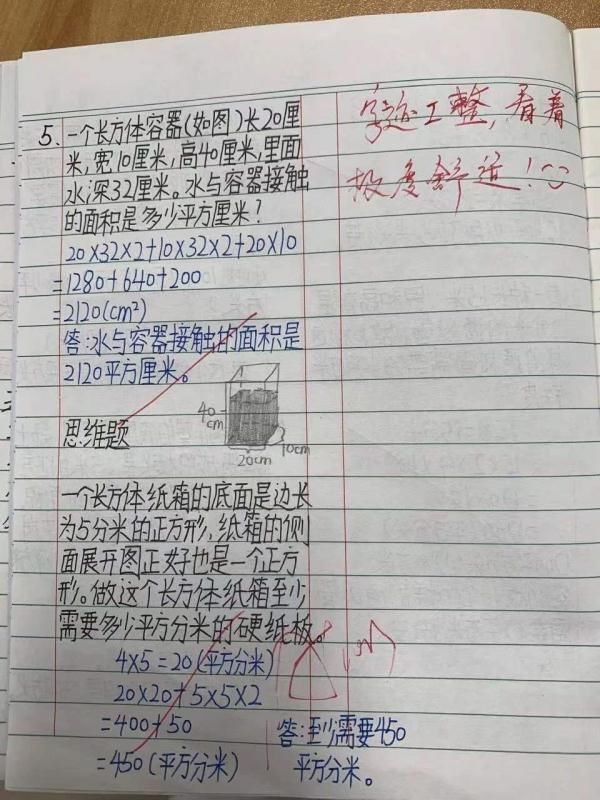 5、一个长方体容器(如图)长20厘
米,宽10厘米,高40厘米,里面
水深32厘米。水与容器接触
的面积是多少平方厘米?
20×32×2+10×32×2+20×10
=1280+640+200
=2120(cm²)
答:水与容器接触的面积是
2120平方厘米。
40
cm
20cm
10cm
思维题
一个长方体纸箱的底面是边长
为5分米的正方形,纸箱的侧
面展开图正好也是一个正方
形。做这个长方体纸箱至少
需要多少平方分米的硬纸板。
4×5=20(平方分米)
20×20+5×5×2
=400+50
=450(平方分米)
答:至少需要450
平方分米。
字迹工整,看着
极度舒适!